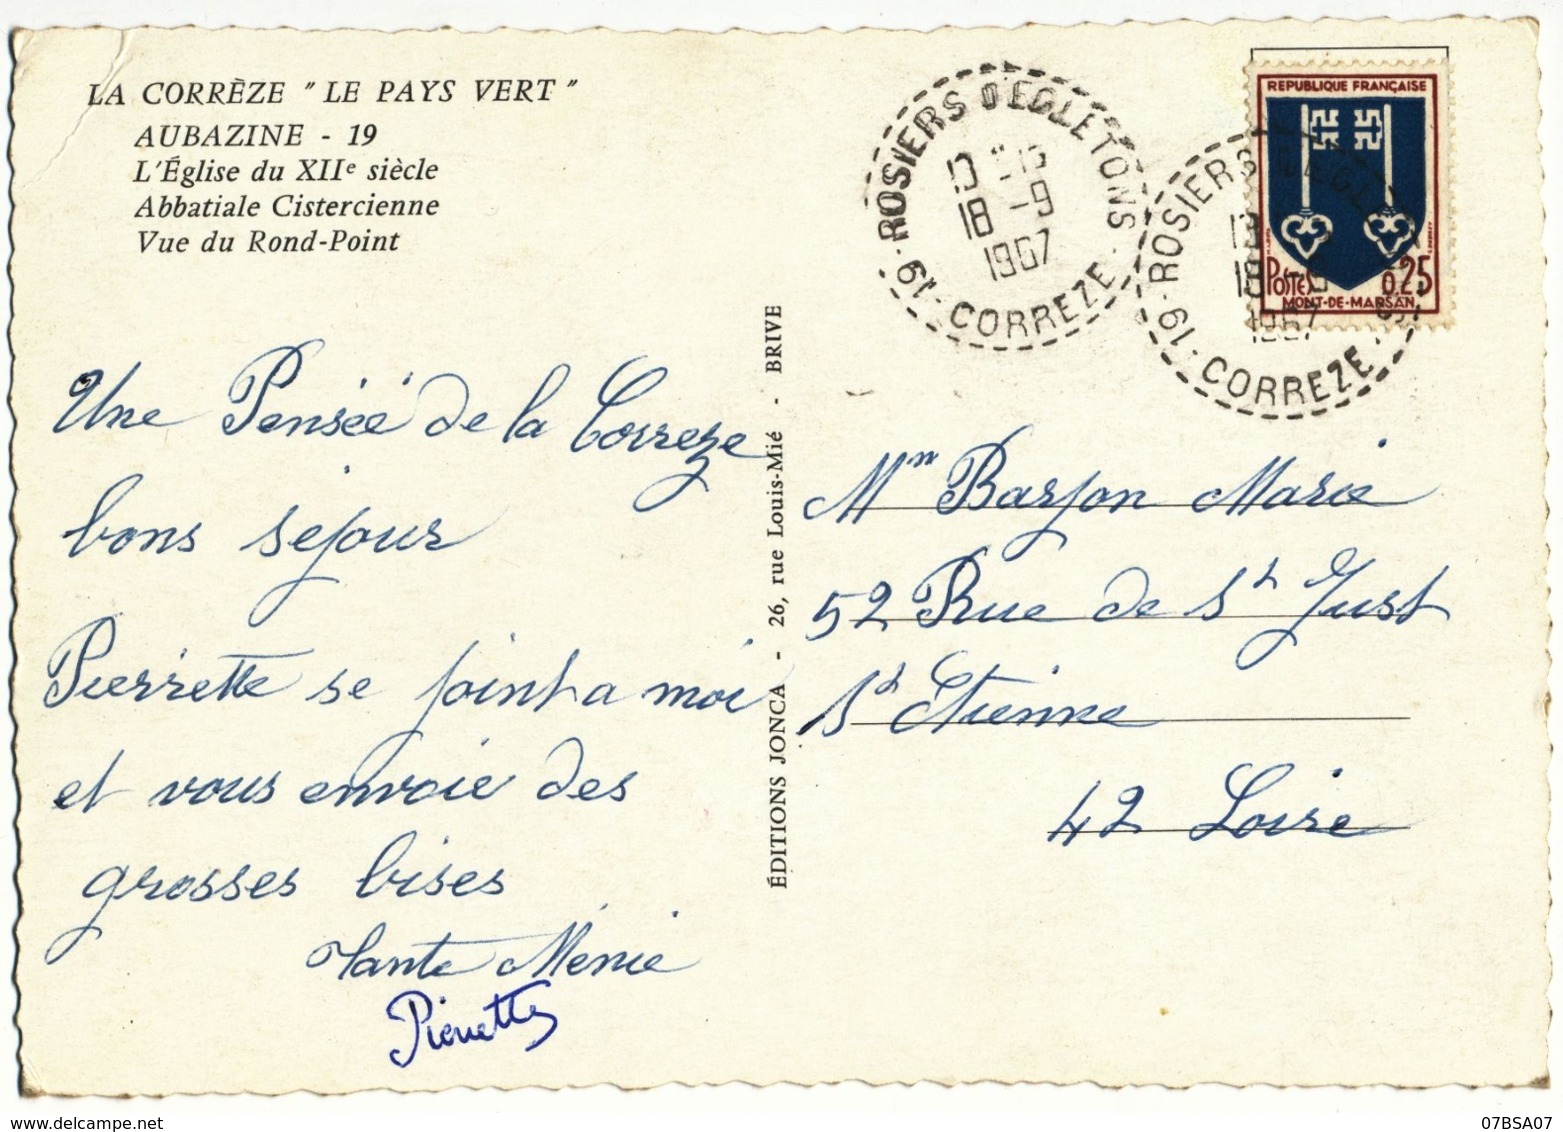 LA CORRÈZE "LE PAYS VERT"
AUBAZINE - 19
L'Église du XIIe siècle
Abbatiale Cistercienne
Vue du Rond-Point
Une Pensée de la Correze
bons sejour
Pierrette se joint a moi
et vous envoie des
grosses bises
Tante Ménie
Pierrette
ÉDITIONS JONCA - 26, rue Louis-Mié - BRIVE
19 - ROSIERS D'EGLETONS - CORREZE
18 -9
1967
19 - ROSIERS D'EGLETONS - CORREZE
1967
REPUBLIQUE FRANÇAISE
POSTES 0,25
MONT-DE-MARSAN
Mm Barjon Marie
52 Rue de St Just
St Etienne
42 Loire
07BSA07